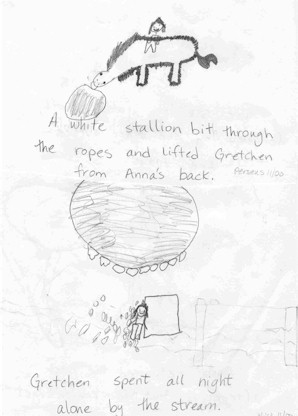 A white stallion bit through
the ropes and lifted Gretchen
from Anna's back.
Gretchen spent all night
alone by the stream.